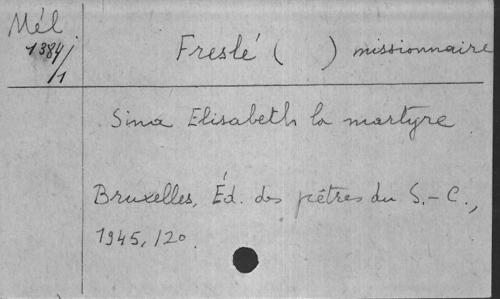 Mél
1384/
/1
Freslé ( ) missionnaire
Sina Elisabeth la martyre
Bruxelles, Éd. des pêtres du S.-C.,
1945, /20.